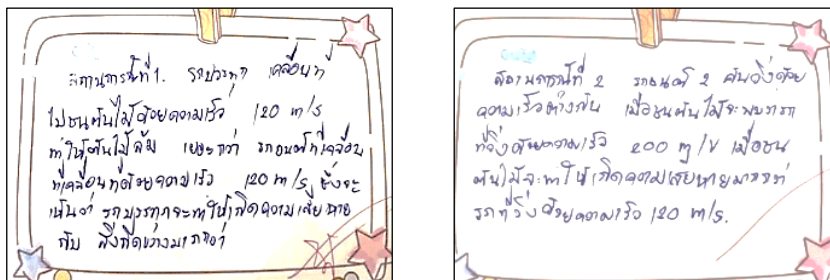 สถานการณ์ที่ 1. รถบรรทุก เคลื่อนที่
ไปชนต้นไม้ด้วยความเร็ว 120 m/s
ทำให้ต้นไม้ล้ม เยอะกว่า รถยนต์ที่เคลื่อน
ที่เคลื่อนที่ด้วยความเร็ว 120 m/s ซึ่งจะ
เห็นว่า รถบรรทุกจะทำให้เกิดความเสียหาย
กับ สิ่งกีดขวางมากกว่า
สถานการณ์ที่ 2 รถยนต์ 2 คันวิ่งด้วย
ความเร็วต่างกัน เมื่อชนต้นไม้จะพบว่ารถ
ที่วิ่งด้วยความเร็ว 200 m/s เมื่อชน
ต้นไม้จะทำให้เกิดความเสียหายมากกว่า
รถที่วิ่งด้วยความเร็ว 120 m/s.